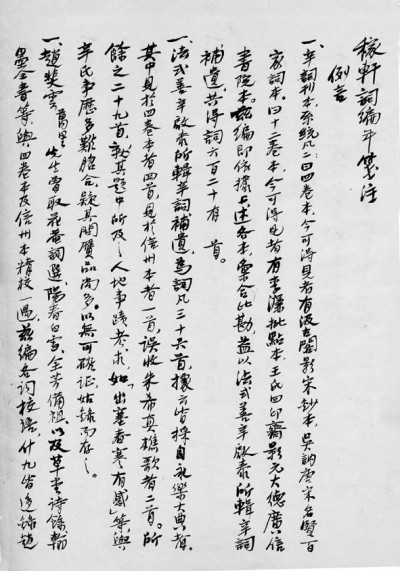 稼軒詞編年箋注
例言
一、辛詞刊本系統凡二:曰四卷本,今可得見者有汲古閣影宋鈔本,吳訥唐宋名賢百
家詞本。曰十二卷本,今可得見者有李濂批點本,王氏四印齋影元大德廣信
書院本。茲編即依據上述各本,彙合比勘,益以法式善辛啟泰所輯辛詞
補遺,共得詞六百二十有 首。
一、法式善辛啟泰所輯辛詞補遺,為詞凡三十六首,據云皆採自永樂大典者。
其中見於四卷本者四首,見於信州本者一首,誤收朱希真樵歌者二首。所
餘之二十九首,就其題中所及之人地事蹟考求,如「出塞春寒有感」等,與
辛氏事歷多難脗合,疑其間贋品尚多。以無可確证,姑錄而存之。
一、趙斐雲萬里先生嘗取花菴詞選、陽春白雪、全芳備祖以及草堂詩餘、翰
墨全書等,與四卷本及信州本精校一過,茲編各詞校語,什九皆迻錄趙